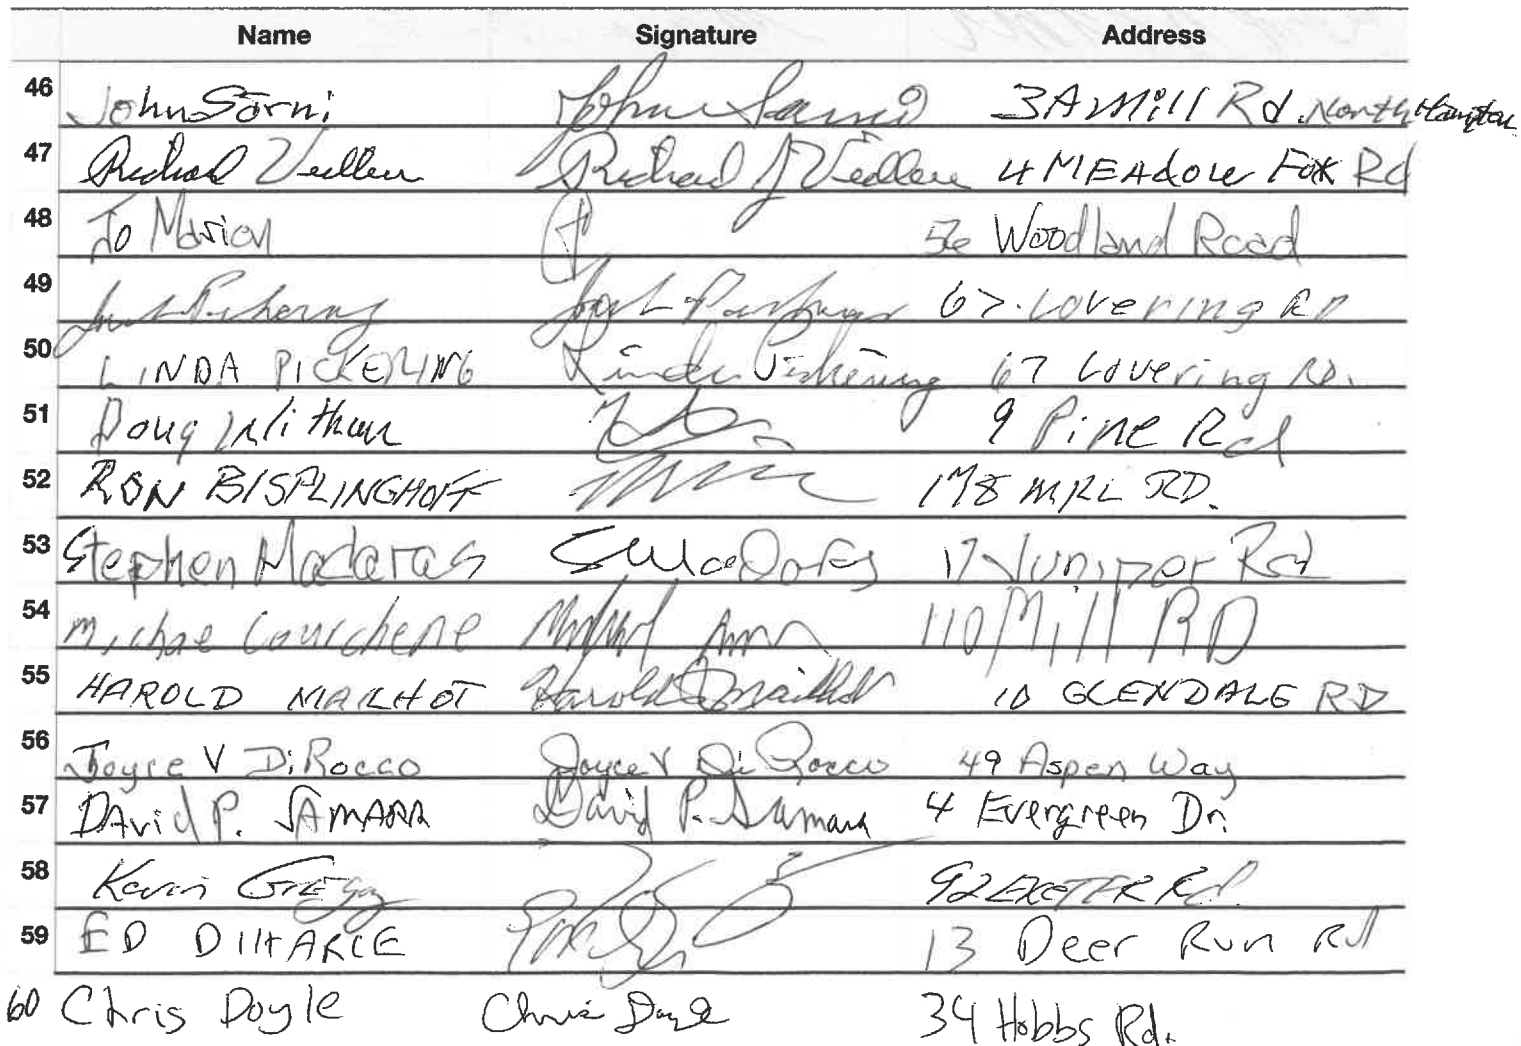 Name Signature Address
46 John Sorni John Sarni 3A Mill Rd. North Hampton
47 Richard Veilleu Richard J Veilleu 4 MEAdow Fox Rd
48 Jo Marion 56 Woodland Road
49 67 Lovering RD
50 LINDA PICKERING Linda Pickering 67 Lovering RD.
51 Doug Witham 9 Pine Rd
52 RON BISPLINGHOFF RD.
53 Stephen Madaras 17 Juniper Rd
54 Michae Courchene 110 Mill RD
55 HAROLD MAILHOT Harold Mailhot 10 GLENDALE RD
56 Joyce V DiRocco Joyce V DiRocco 49 Aspen Way
57 DAvid P. SAMARA David P. Samara 4 Evergreen Dr.
58 Kevin GREgg 92 EXETER Rd.
59 ED 13 Deer Run Rd
60 Chris Doyle Chris Doyle 34 Hobbs Rd.